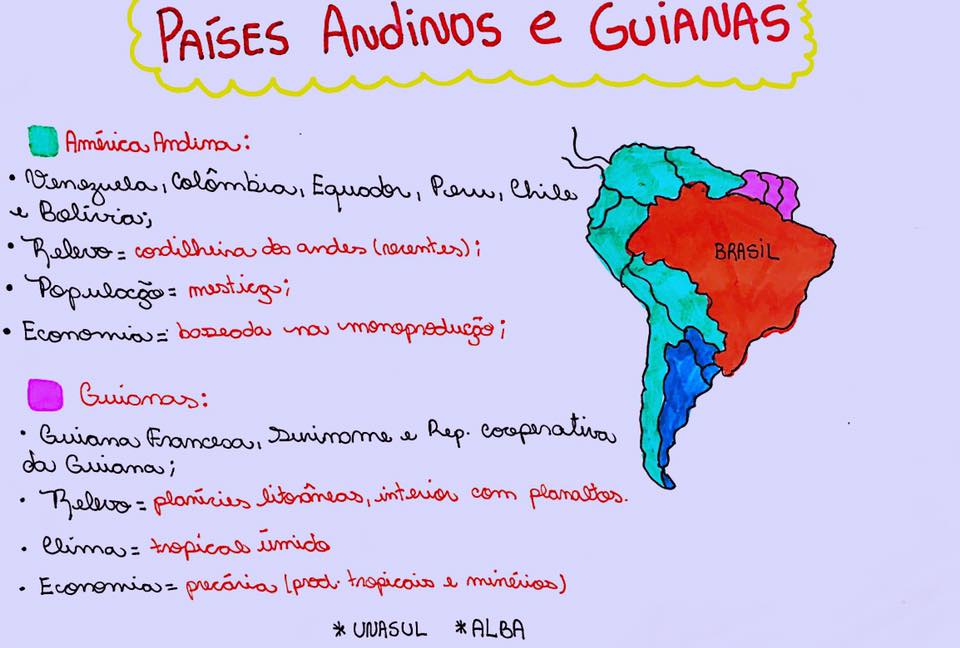 PAÍSES ANDINOS e GUIANAS
América Andina:
• Venezuela, Colômbia, Equador, Peru, Chile
e Bolívia;
• Relevo = cordilheira dos andes (recentes);
• População = mestiça;
• Economia = baseada na monoprodução;
BRASIL
Guianas:
• Guiana Francesa, Suriname e Rep. cooperativa
da Guiana;
• Relevo = planícies litorâneas, interior com planaltos.
• Clima = tropical úmido
• Economia = precária (prod. tropicais e minérios)
* UNASUL * ALBA